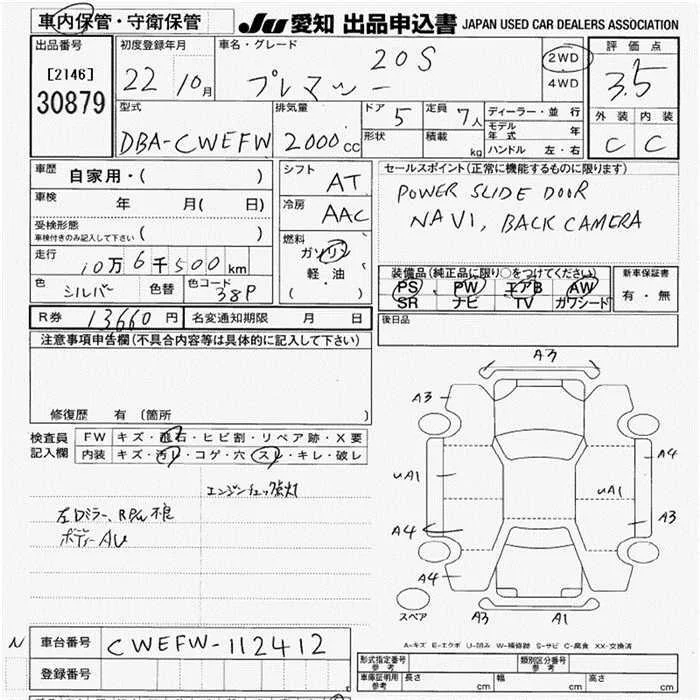 車内保管・守衛保管
JU 愛知 出品申込書 JAPAN USED CAR DEALERS ASSOCIATION
出品番号 初度登録年月 車名・グレード 評価点
[2146] 30879
22 10月
プレマシー 20S
2WD
4WD
3.5
型式 排気量 ドア 5 定員 7人 ディーラー・並行 外装 内装
DBA-CWEFW 2000cc
形状 積載 kg モデル年式 年
ハンドル 左・右
C C
車歴 自家用・( )
シフト AT
セールスポイント(正常に機能するものに限ります)
POWER SLIDE DOOR
NAVI, BACK CAMERA
車検 年 月( 日)
冷房 AAC
受検形態
車検付きのみ記入して下さい ( )
燃料
ガソリン
軽・油
( ・ )
走行 10万6千500km
装備品(純正品に限り○をつけてください) 新車保証書
PS PW エアB AW
SR ナビ TV カワシート
有・無
色 シルバー 色替 色コード 38P
R券 13660円 名変通知期限 月 日
後日品
注意事項申告欄(不具合内容等は具体的に記入して下さい)
修復歴 有(箇所 )
検査員
記入欄
FW キズ・飛石・ヒビ割・リペア跡・X要
内装 キズ・汚レ・コゲ・穴・スレ・キレ・破レ
エンジンチェック点灯
左Dミラー、RPW不良
ボデーAU
A3
A3
A4
UA1
UA1
A4
A3
A4
スペア
A3
A1
A-キズ E-エクボ U-凹み W-補修跡 S-サビ C-腐食 XX-交換済
N 車台番号 CWEFW-112412
登録番号
形式指定番号 参考 類別区分番号 参考
車庫証明用 参考 長さ cm 幅 cm 高さ cm